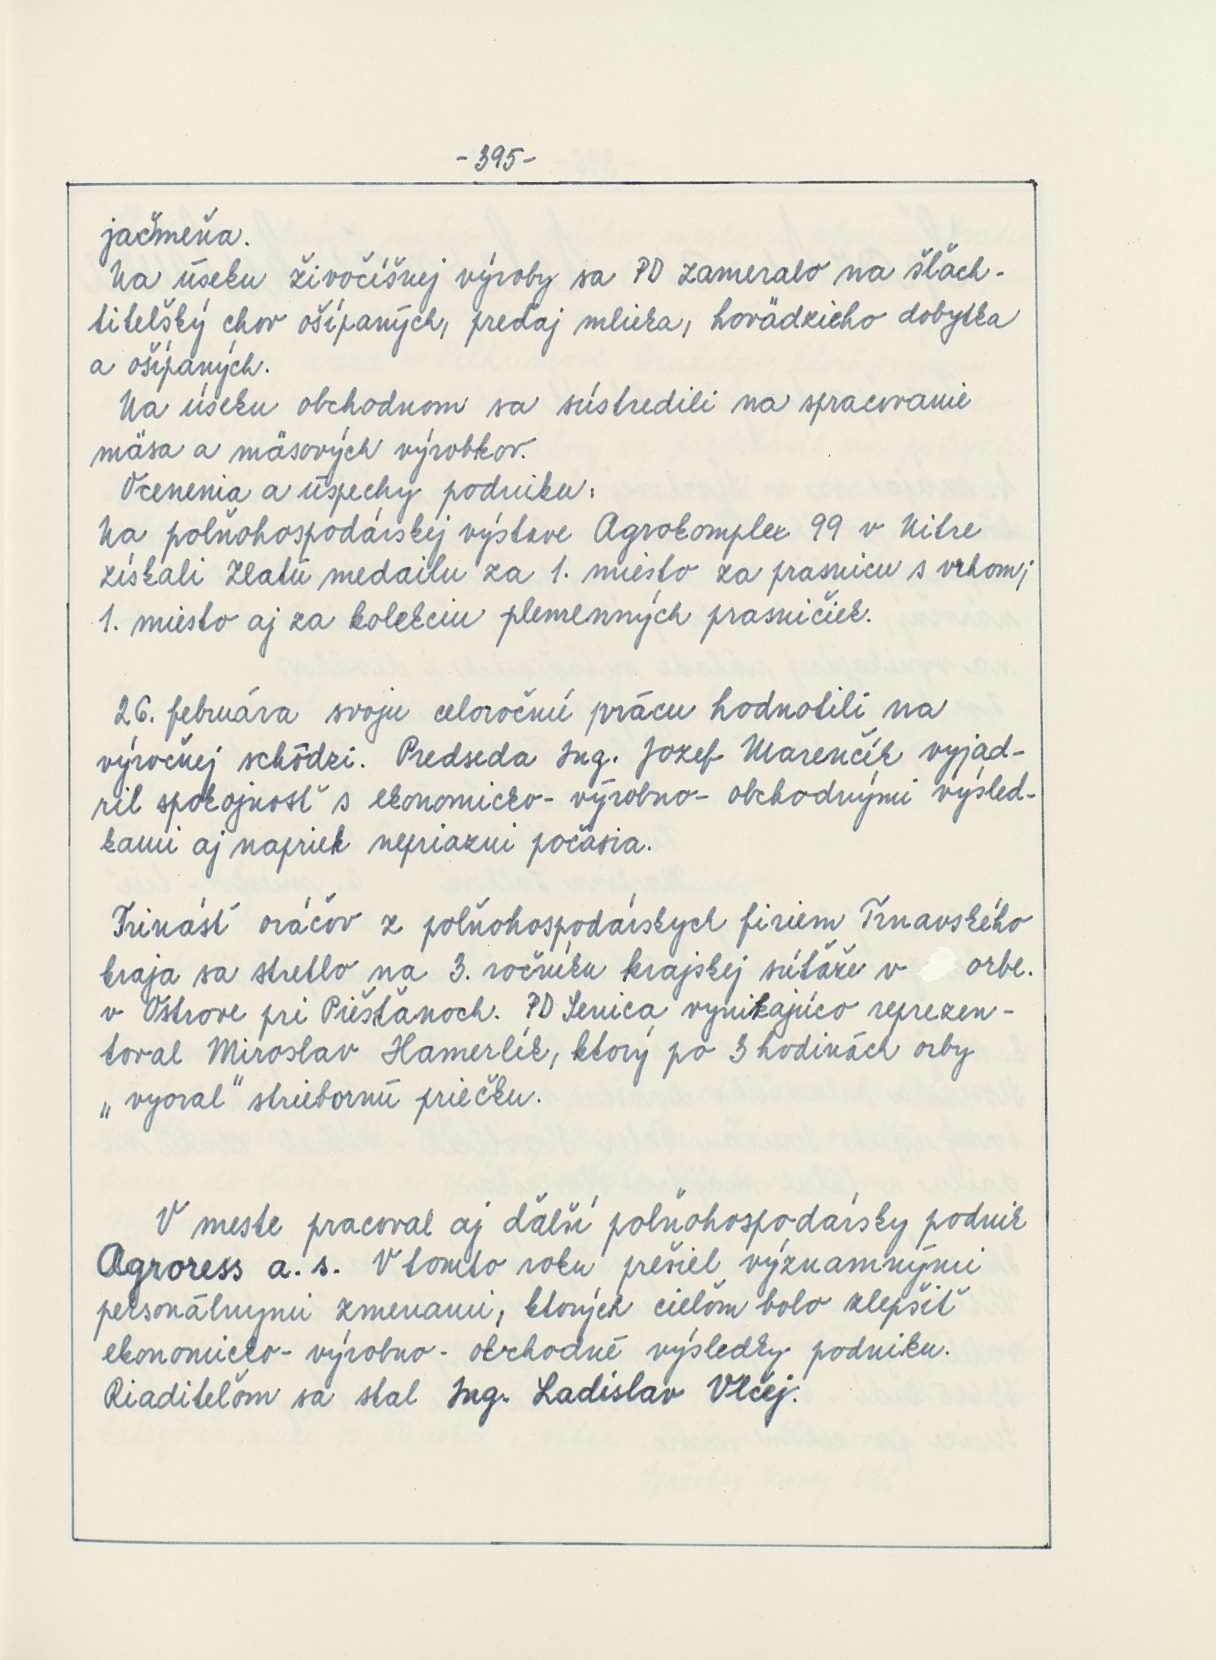 -395-
jačmeňa.
Na úseku živočíšnej výroby sa PD zameralo na šľach-
titeľský chov ošípaných, predaj mlieka, hovädzieho dobytka
a ošípaných.
Na úseku obchodnom sa sústredili na spracovanie
mäsa a mäsových výrobkov.
Ocenenia a úspechy podniku:
Na poľnohospodárskej výstave Agrokomplex 99 v Nitre
získali zlatú medailu za 1. miesto za prasnicu s vrhom,
1. miesto aj za kolekciu plemenných prasničiek.
26. februára svoju celoročnú prácu hodnotili na
výročnej schôdzi. Predseda Ing. Jozef Marenčík vyjad-
ril spokojnosť s ekonomicko-výrobno-obchodnými výsled-
kami aj napriek nepriazni počasia.
Trinásť oráčov z poľnohospodárskych firiem Trnavského
kraja sa stretlo na 3. ročníku krajskej súťaže v orbe.
v Ostrove pri Piešťanoch. PD Senica vynikajúco reprezen-
toval Miroslav Hamerlík, ktorý po 3 hodinách orby
„vyoral" striebornú priečku.
V meste pracoval aj ďalší poľnohospodársky podnik
Agroress a. s. V tomto roku prešiel významnými
personálnymi zmenami, ktorých cieľom bolo zlepšiť
ekonomicko-výrobno-obchodné výsledky podniku.
Riaditeľom sa stal Ing. Ladislav Vlčej.